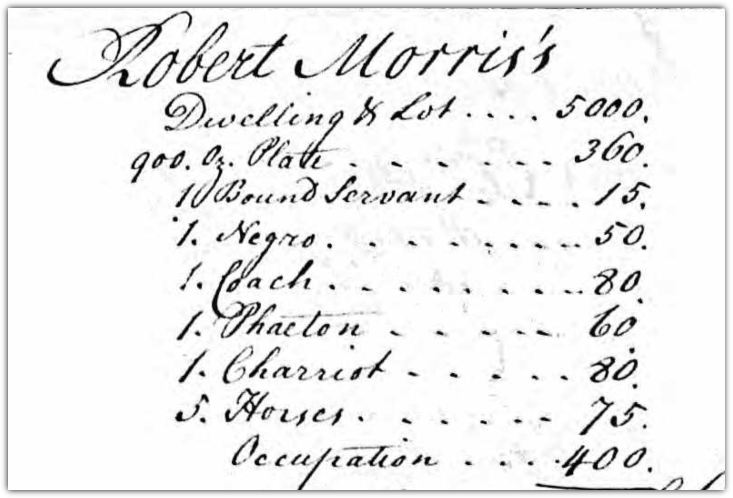 Robert Morris's
Dwelling & Lot .... 5000.
900. Oz. Plate . - - - - - - 360.
1 Bound Servant - - - - - 15.
1. Negro. - - - - - - - - 50.
1. Coach - - - - - - - - 80.
1. Phaeton - - - - - - 60.
1. Charriot - - - - - - 80.
5. Horses - - - - - - - 75.
Occupation - - - - 400.